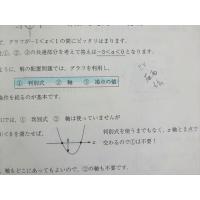 で、グラフが-1<x<1の間にピッタリはまります。
①、②、③の共通部分を考えて答えは-5<a<0となります。
ように、解の配置問題では、グラフを利用し、
① 判別式 ② 軸 ③ 端点の値
条件を絞るのが基本です。
これでは、① 判別式 ② 軸は使っていませんが
<0を満たせば、
判別式を使うまでもなく、x軸と2点で
交わるので①は不要!
x
軸もどこにあってもよいので、②の軸も不要です。